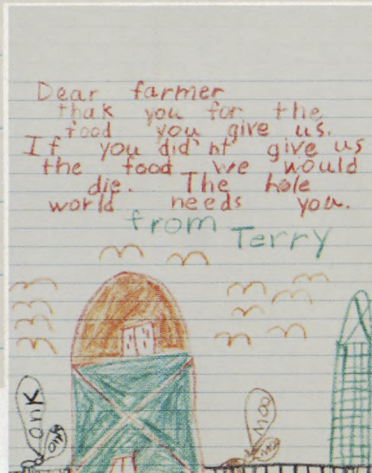 Dear farmer
thak you for the
food you give us.
If you did'nt give us
the food we would
die. The hole
world needs you.
from
Terry
onk
onk
moo
moo